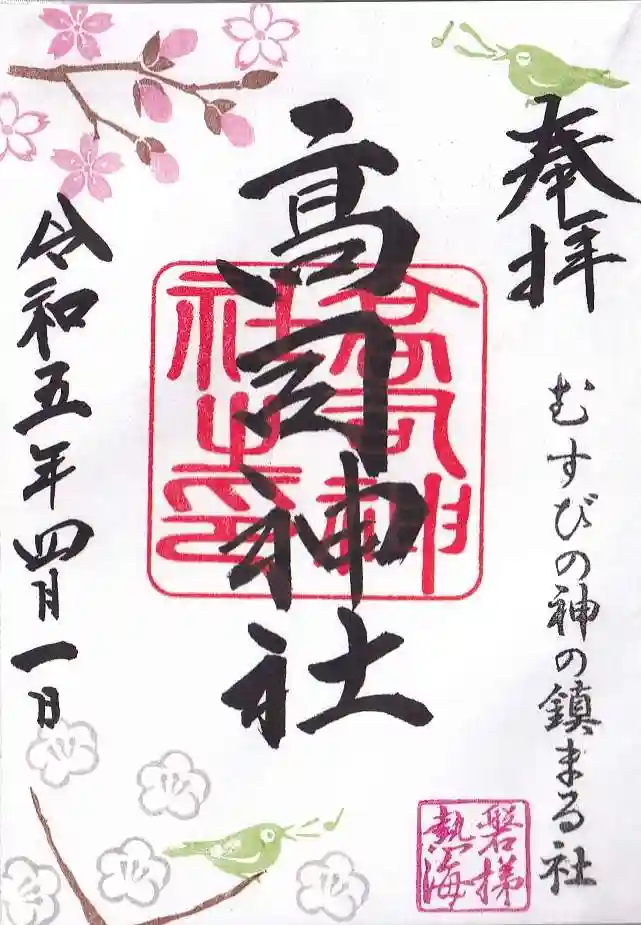 奉拝
むすびの神の鎮まる社
高司神社
高司神
社之印
令和五年四月一日
磐梯
熱海